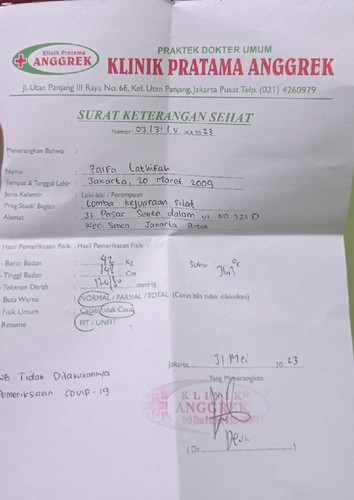 Klinik Pratama
ANGGREK
PRAKTEK DOKTER UMUM
KLINIK PRATAMA ANGGREK
Jl. Utan Panjang III Raya No. 6E, Kel. Utan Panjang, Jakarta Pusat Telp. (021) 4260979
SURAT KETERANGAN SEHAT
Nomor : 03/31/V /KA/20 23
Menerangkan Bahwa :
Nama : Zalfa Lathifah
Tempat & Tanggal Lahir : Jakarta, 20 Maret 2009
Jenis Kelamin : Laki-laki / Perempuan
Prog Studi/ Bagian : Lomba Kejuaraan Silat
Alamat : Jl Pasar Senen dalam VI NO.221 D
Kec. Senen Jakarta Pusat
Hasil Pemeriksaan Fisik : Hasil Pemeriksaan Fisik :
- Berat Badan : 42 Kg
- Tinggi Badan : 148 Cm
- Tekanan Darah : mmHg
Suhu
- Buta Warna : NORMAL / PARSIAL / TOTAL (Coret bila tidak dilakukan)
- Fisik Umum : Cacat/tidak Cacat
Resume : FIT / UNFIT
NB. Tidak Dilakukannya
Pemeriksaan COVID-19
Jakarta, 31 Mei 20 23
Yang Menerangkan
KLINIK
ANGGREK
(Dr. )